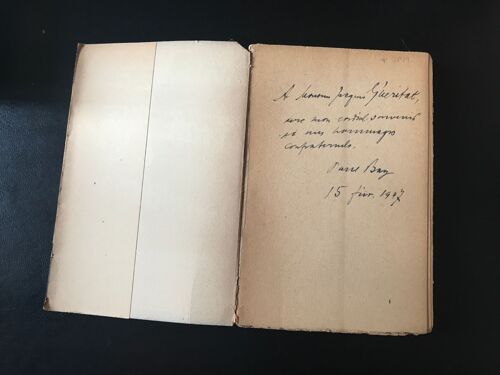 A Monsieur Jacques Ghéritat,
avec mon cordial souvenir
et mes hommages
confraternels.
Paul Bay
15 févr. 1947